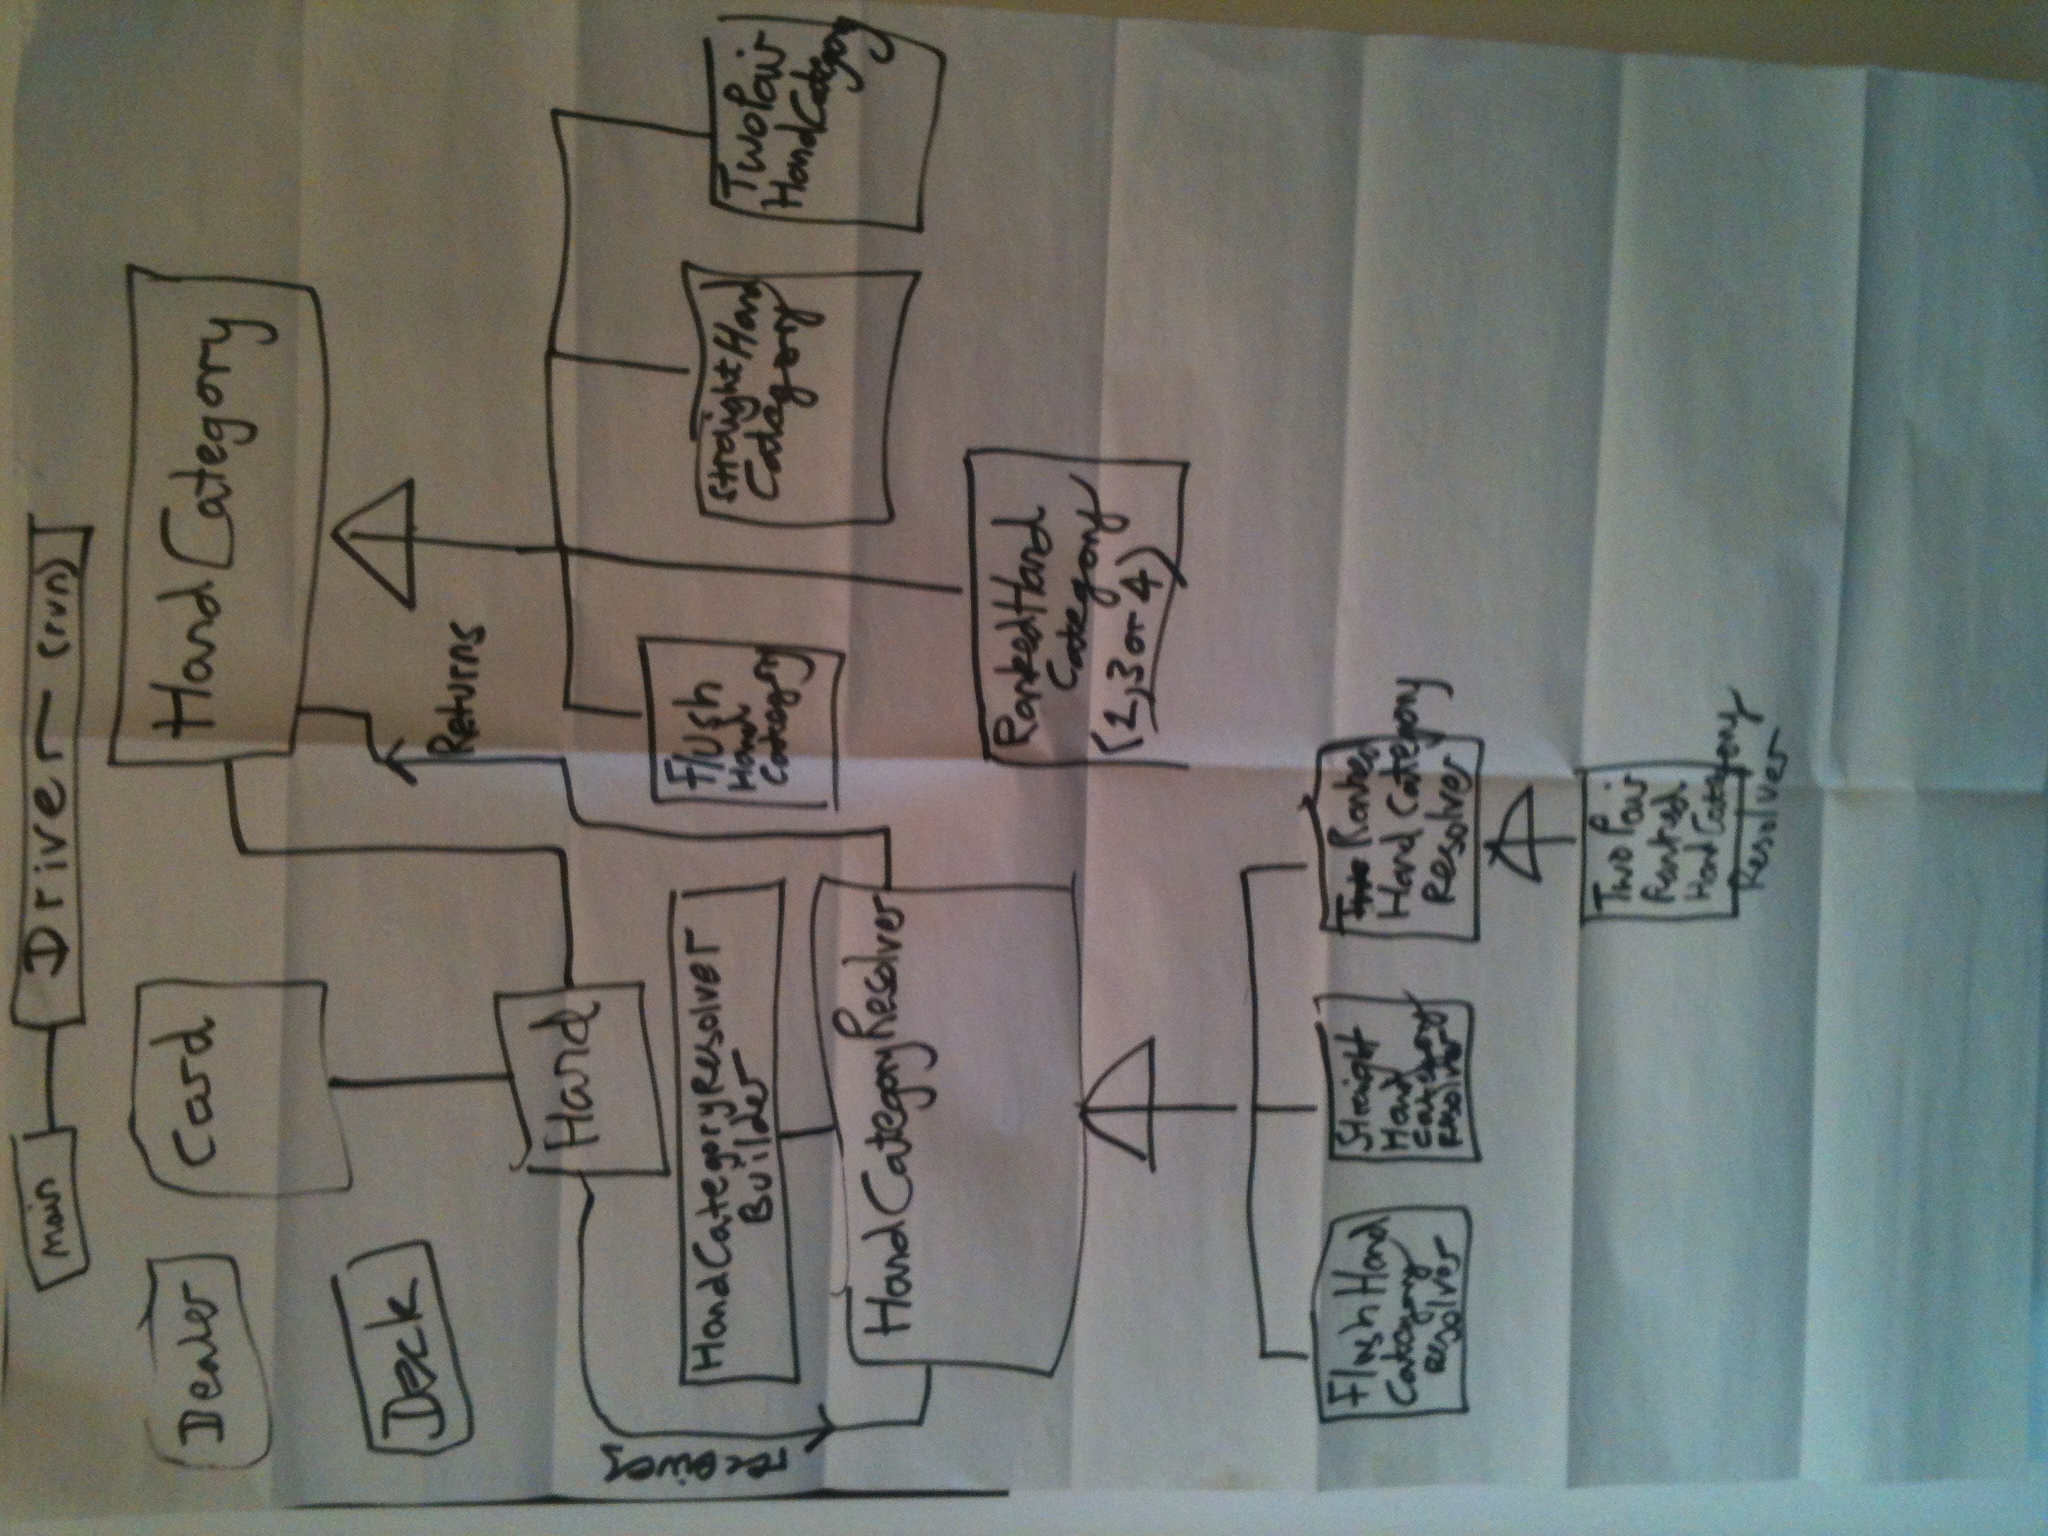 main
Driver (run)
Dealer
Card
HandCategory
Deck
Returns
Hand
receives
HandCategoryResolver
Builder
Flush
Hand
Category
StraightHand
Category
TwoPair
HandCategory
HandCategoryResolver
RankedHand
Category
(2,3 or 4)
FlushHand
Category
Resolver
Straight
Hand
Category
Resolver
Ranked
Hand Category
Resolver
Two Pair
Ranked
HandCategory
Resolver